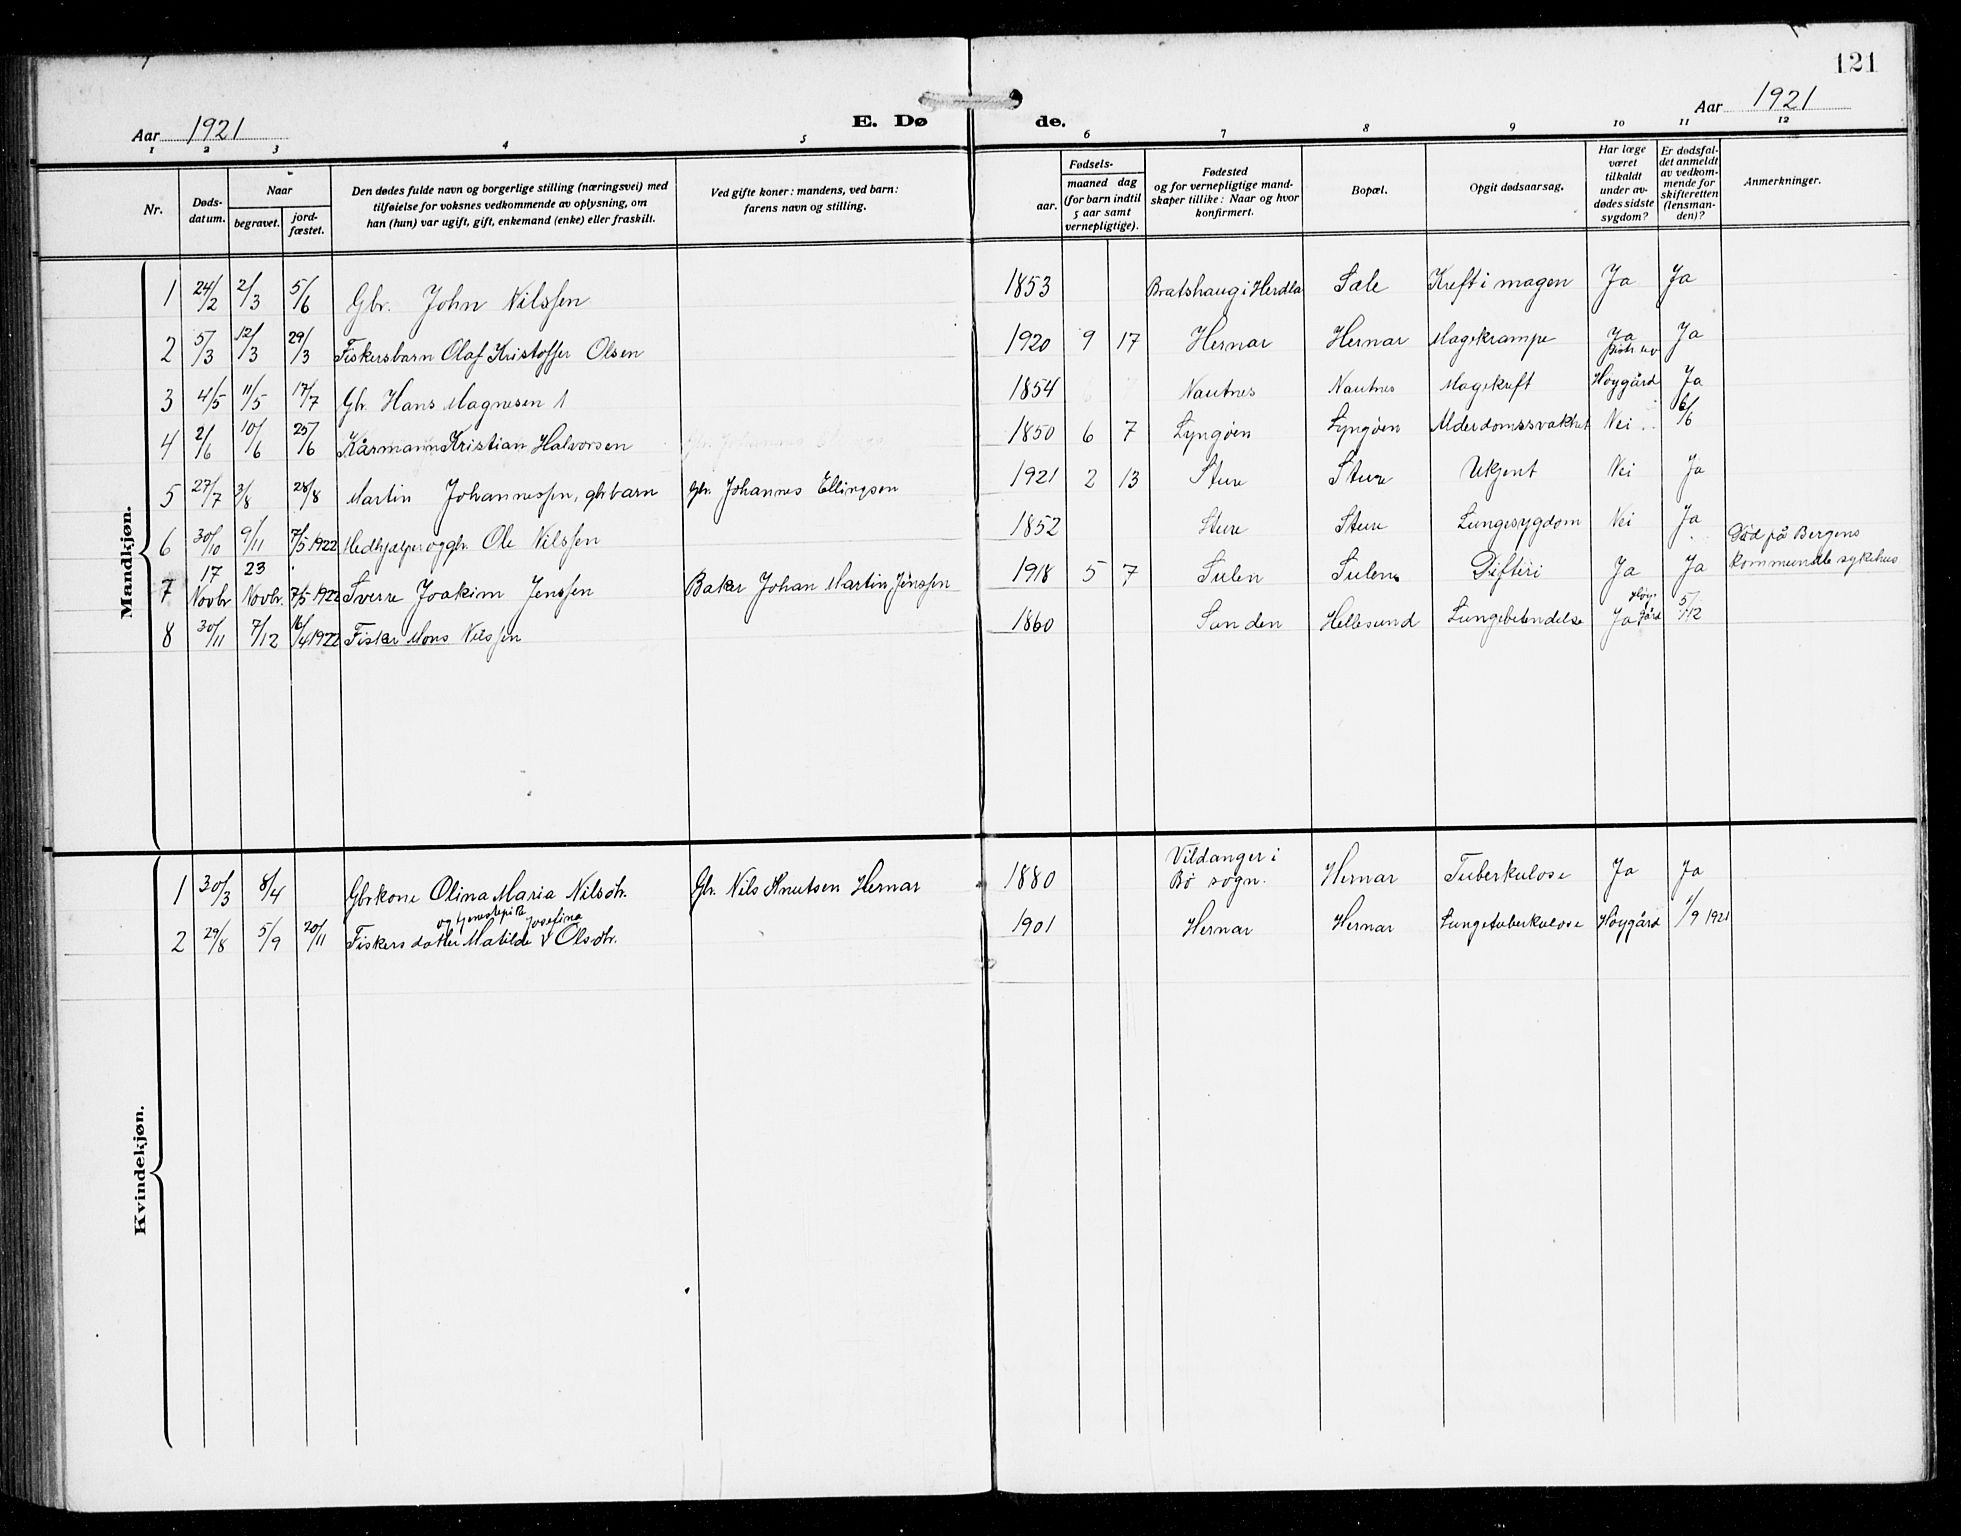 121
Aar 1921
E. Døde.
Aar 1921
1 2 3 4 5 6 7 8 9 10 11 12
Nr.
Døds-
datum.
Naar
begravet.
jord-
fæstet.
Den dødes fulde navn og borgerlige stilling (næringsvei) med
tilføielse for voksnes vedkommende av oplysning, om
han (hun) var ugift, gift, enkemand (enke) eller fraskilt.
Ved gifte koner: mandens, ved barn:
farens navn og stilling.
Fødsels-
aar.
maaned dag
(for barn indtil
5 aar samt
vernepligtige).
Fødested
og for vernepligtige mand-
skaper tillike: Naar og hvor
konfirmert.
Bopæl.
Opgit dødsaarsag.
Har læge
været
tilkaldt
under av-
dødes sidste
sygdom?
Er dødsfal-
det anmeldt
av vedkom-
mende for
skifteretten
(lensman-
den)?
Anmerkninger.
Mandkjøn.
1 24/2 2/3 5/6 Gbr. John Nilssen 1853 Bratshaug i Herdla Sæle Kreft i magen Ja Ja
2 5/3 12/3 29/3 Fiskersbarn Olaf Kristoffer Olsen 1920 9 17 Hernar Hernar Magekrampe Ja Ja
3 4/5 11/5 17/7 Gbr. Hans Magnesen 1854 Nautnes Nautnes Magekreft Høygård Ja
4 2/6 10/6 25/6 Kårmann Kristian Halvorsen 1850 6 7 Lyngøen Lyngøen Alderdomssvakhet Nei 6/6
5 27/7 3/8 28/8 Martin Johannessen, gbrbarn Gbr. Johannes Ellingsen 1921 2 13 Sture Sture Ukjent Nei Ja
6 30/10 9/11 7/5 1922 Medhjelper og gbr. Ole Nilssen 1852 Sture Sture Lungesygdom Nei Ja
7 17 Novbr 23 Novbr. 7/5 1922 Sverre Joakim Jenssen Baker Johan Martin Jenssen 1918 5 7 Sulen Sulen Difteri Ja Ja Død på Bergens
kommunale sykehus
8 30/11 7/12 16/4 1922 Fisker Mons Nilssen 1860 Sanden Hellesund Lungebetendelse Ja Høygård 5/12
Kvindekjøn.
1 30/3 8/4 Gbrkone Olina Maria Nilsdtr. Gbr. Nils Knutsen Hernar 1880 Vildanger i
Bø sogn. Hernar Tuberkulose Ja Ja
og tjenestepike Josefina
2 29/8 5/9 20/11 Fiskersdatter Matilde Olsdtr. 1901 Hernar Hernar Lungetuberkulose Høygård 1/9 1921